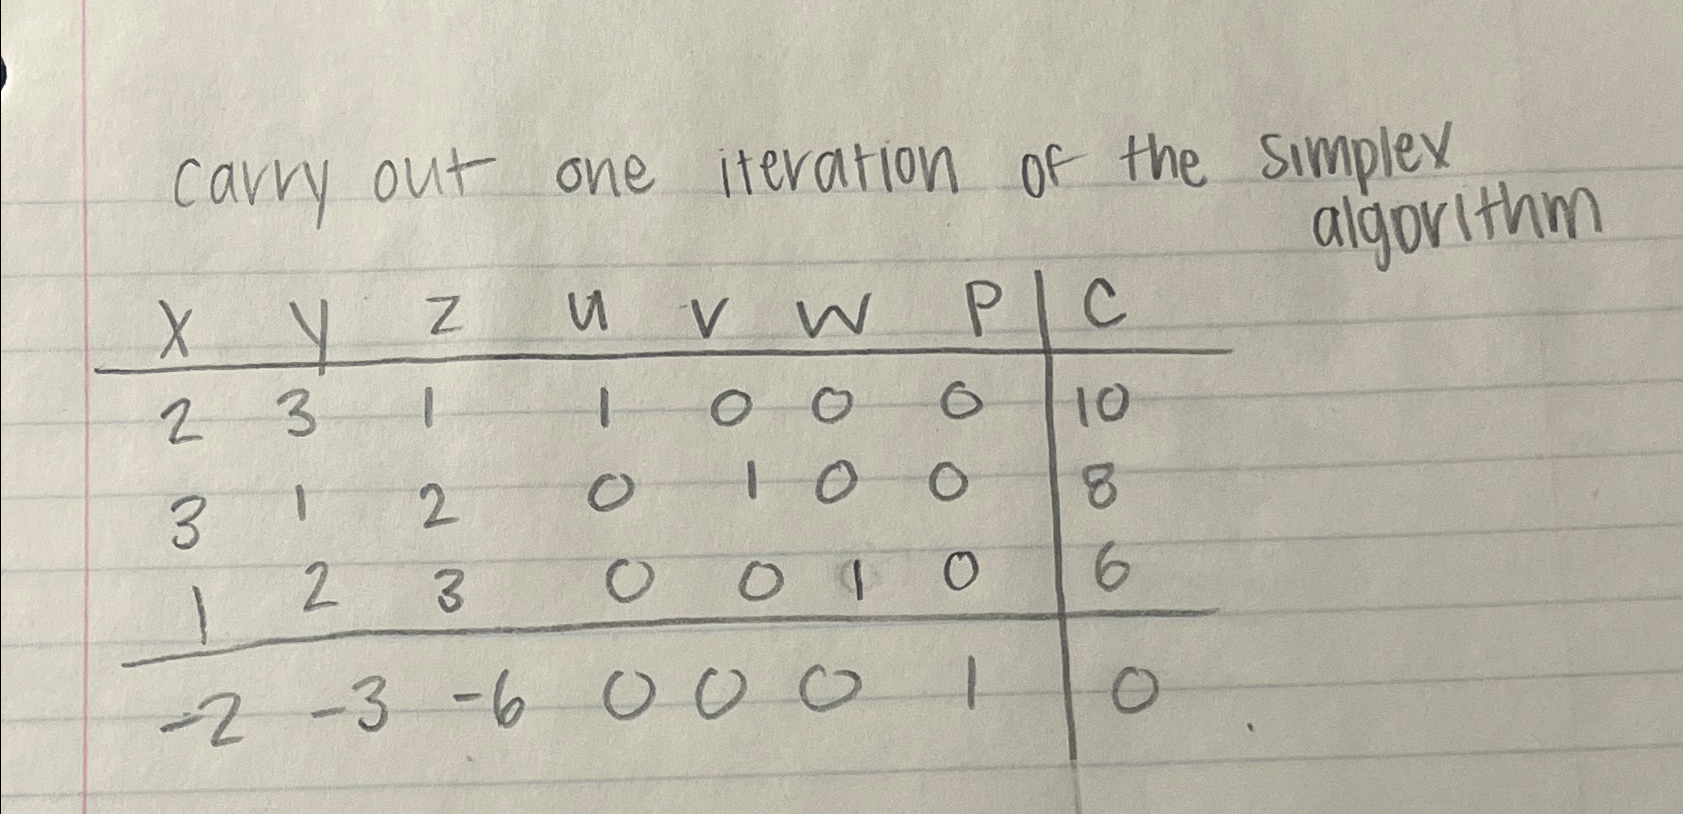 carry out one iteration of the simplex
algorithm
x y z u v w P C
2 3 1 1 0 0 0 10
3 1 2 0 1 0 0 8
1 2 3 0 0 1 0 6
-2 -3 -6 0 0 0 1 0